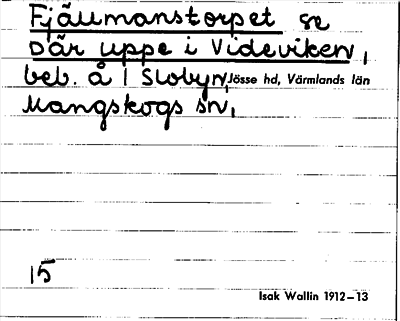 Fjällmanstorpet se
Där uppe i Videviken,
beb. å 1 Slobyn, Jösse hd, Värmlands län
Mangskogs sn,
15
Isak Wallin 1912–13